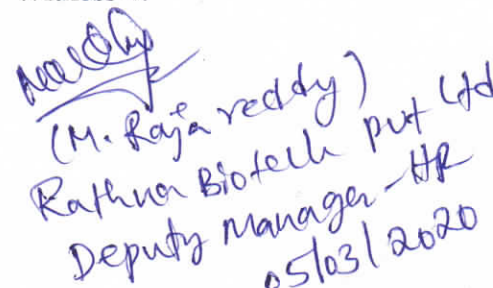 (M. Raja reddy)
Rathna Biotech pvt Ltd
Deputy Manager-HR
05/03/2020